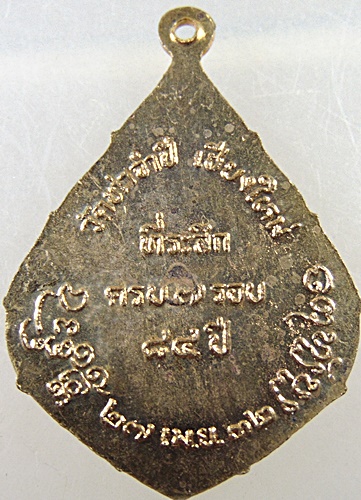 วัดท่าจำปี เชียงใหม่
ที่ระลึก
ครบ ๗ รอบ
๘๔ ปี
๒๗ เม.ย. ๓๒